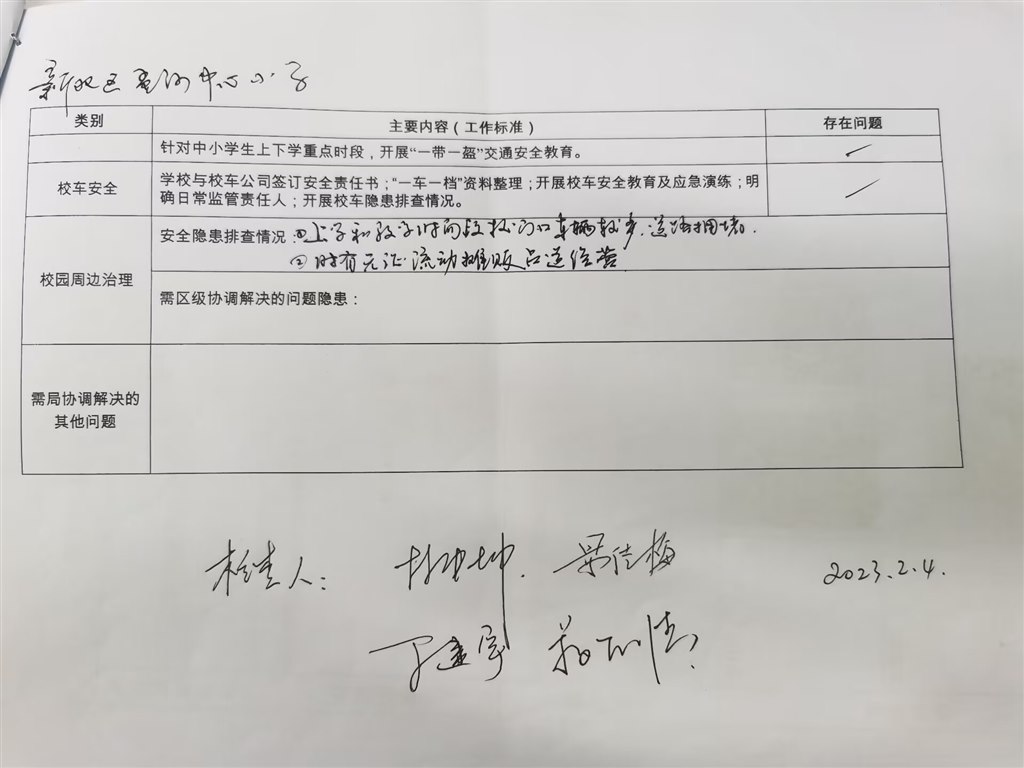 新北区 中心小学
类别 主要内容（工作标准） 存在问题
针对中小学生上下学重点时段，开展“一带一盔”交通安全教育。
校车安全
学校与校车公司签订安全责任书；“一车一档”资料整理；开展校车安全教育及应急演练；明
确日常监管责任人；开展校车隐患排查情况。
校园周边治理
安全隐患排查情况：①上学和放学时间段校门口车辆较多，道路拥堵。
②时有无证流动摊贩占道经营
需区级协调解决的问题隐患：
需局协调解决的
其他问题
检查人：
2023.2.4.